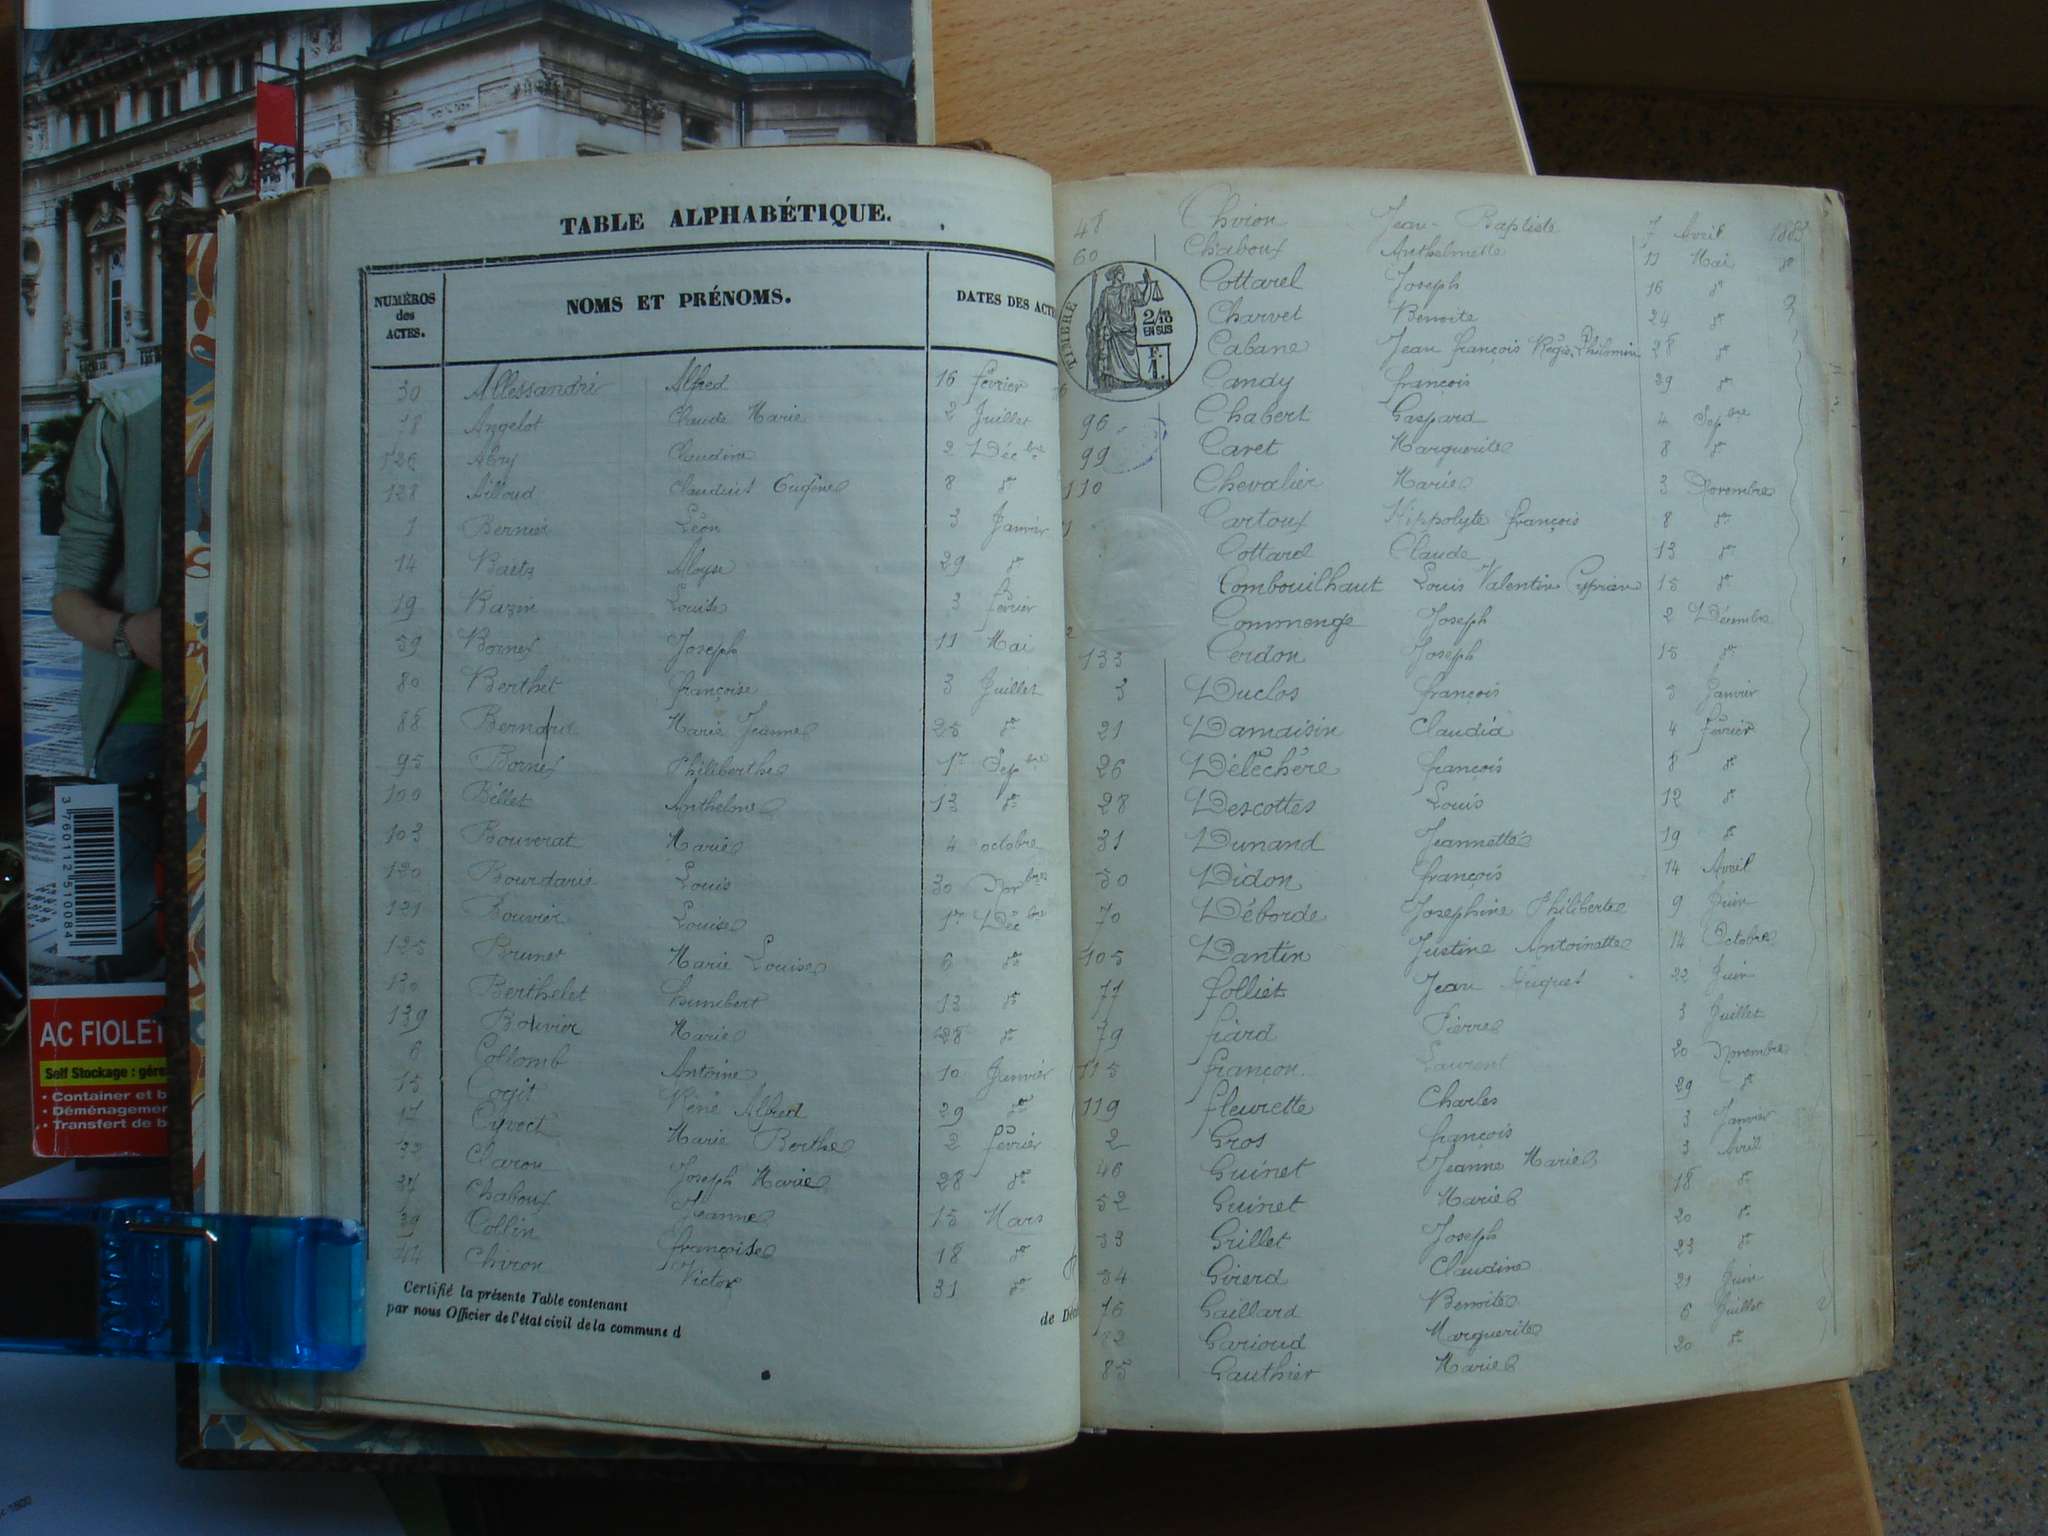 TABLE ALPHABÉTIQUE.
NUMÉROS des ACTES. NOMS ET PRÉNOMS. DATES DES ACTE
30 Allessandri Alfred 16 février
78 Angelot Claude Marie 2 Juillet
126 Abry Claudine 2 Décbre
128 Ailloud Claudius Eugène 8 do
1 Bernier Léon 3 Janvier
14 Baetz Aloyse 29 do
19 Bazin Louise 3 février
59 Bornex Joseph 11 Mai
80 Berthet françoise 3 Juillet
88 Bernard Marie Jeanne 25 do
95 Bornex Philiberthe 1er Sepbre
100 Béllet Anthelone 13 do
103 Bouverat Marie 4 octobre
120 Bourdaris Louis 30 Novbre
121 Bouvier Louise 1er Décbre
125 Brunet Marie Louise 6 do
130 Berthelet humbert 13 do
139 Bouvier Marie 28 do
6 Collomb Antoine 10 Janvier
15 Cogit Réné Albert 29 do
17 Cyvoct Marie Berthe 2 février
33 Claron Joseph Marie 28 do
37 Chaboux Jeanne 15 Mars
39 Collin françoise 18 do
44 Chvron Victor 31 do
Certifié la présente Table contenant
par nous Officier de l'état civil de la commune d
de Déc
48 Chvion Jean-Baptiste 7 Avril 1883
60 Chaboux Anthelmette 11 Mai do
Cottarel Joseph 16 do
Charvet Benoite 24 do
Cabane Jean françois Régis Philomin 28 do
Candy françois 29 do
96 Chabert Gaspard 4 Sepbre
99 Caret Marguerite 8 do
110 Chevalier Marie 3 Novembre
Cartoux Hippolyte françois 8 do
Cottard Claude 13 do
Combouilhaut Louis Valentin Cyprien 15 do
Commenge Joseph 2 Décembre
133 Cerdon Joseph 15 do
3 Duclos françois 3 Janvier
21 Damaisin Claudia 4 février
26 Délechère françois 8 do
28 Descottes Louis 12 do
31 Dunand Jeannette 19 do
50 Didon françois 14 Avril
70 Déborde Josephine Philiberte 9 Juin
105 Dantin Justine Antoinette 14 Octobre
77 folliet Jean 22 Juin
79 fiard Pierre 3 Juillet
115 françon Laurent 20 Novembre
119 fleurette Charles 29 do
2 Gros françois 3 Janvier
46 Guinet Jeanne Marie 3 Avril
52 Guinet Marie 18 do
53 Grillet Joseph 20 do
54 Girerd Claudine 23 do
76 Gaillard Benoite 21 Juin
82 Garioud Marguerite 6 Juillet
85 Gauthier Marie 20 do
TIMBRE
2/10 EN SUS
F. 1.
3 760112 510084
AC FIOLET
Self Stockage : gére
• Container et b
• Déménagemen
• Transfert de b